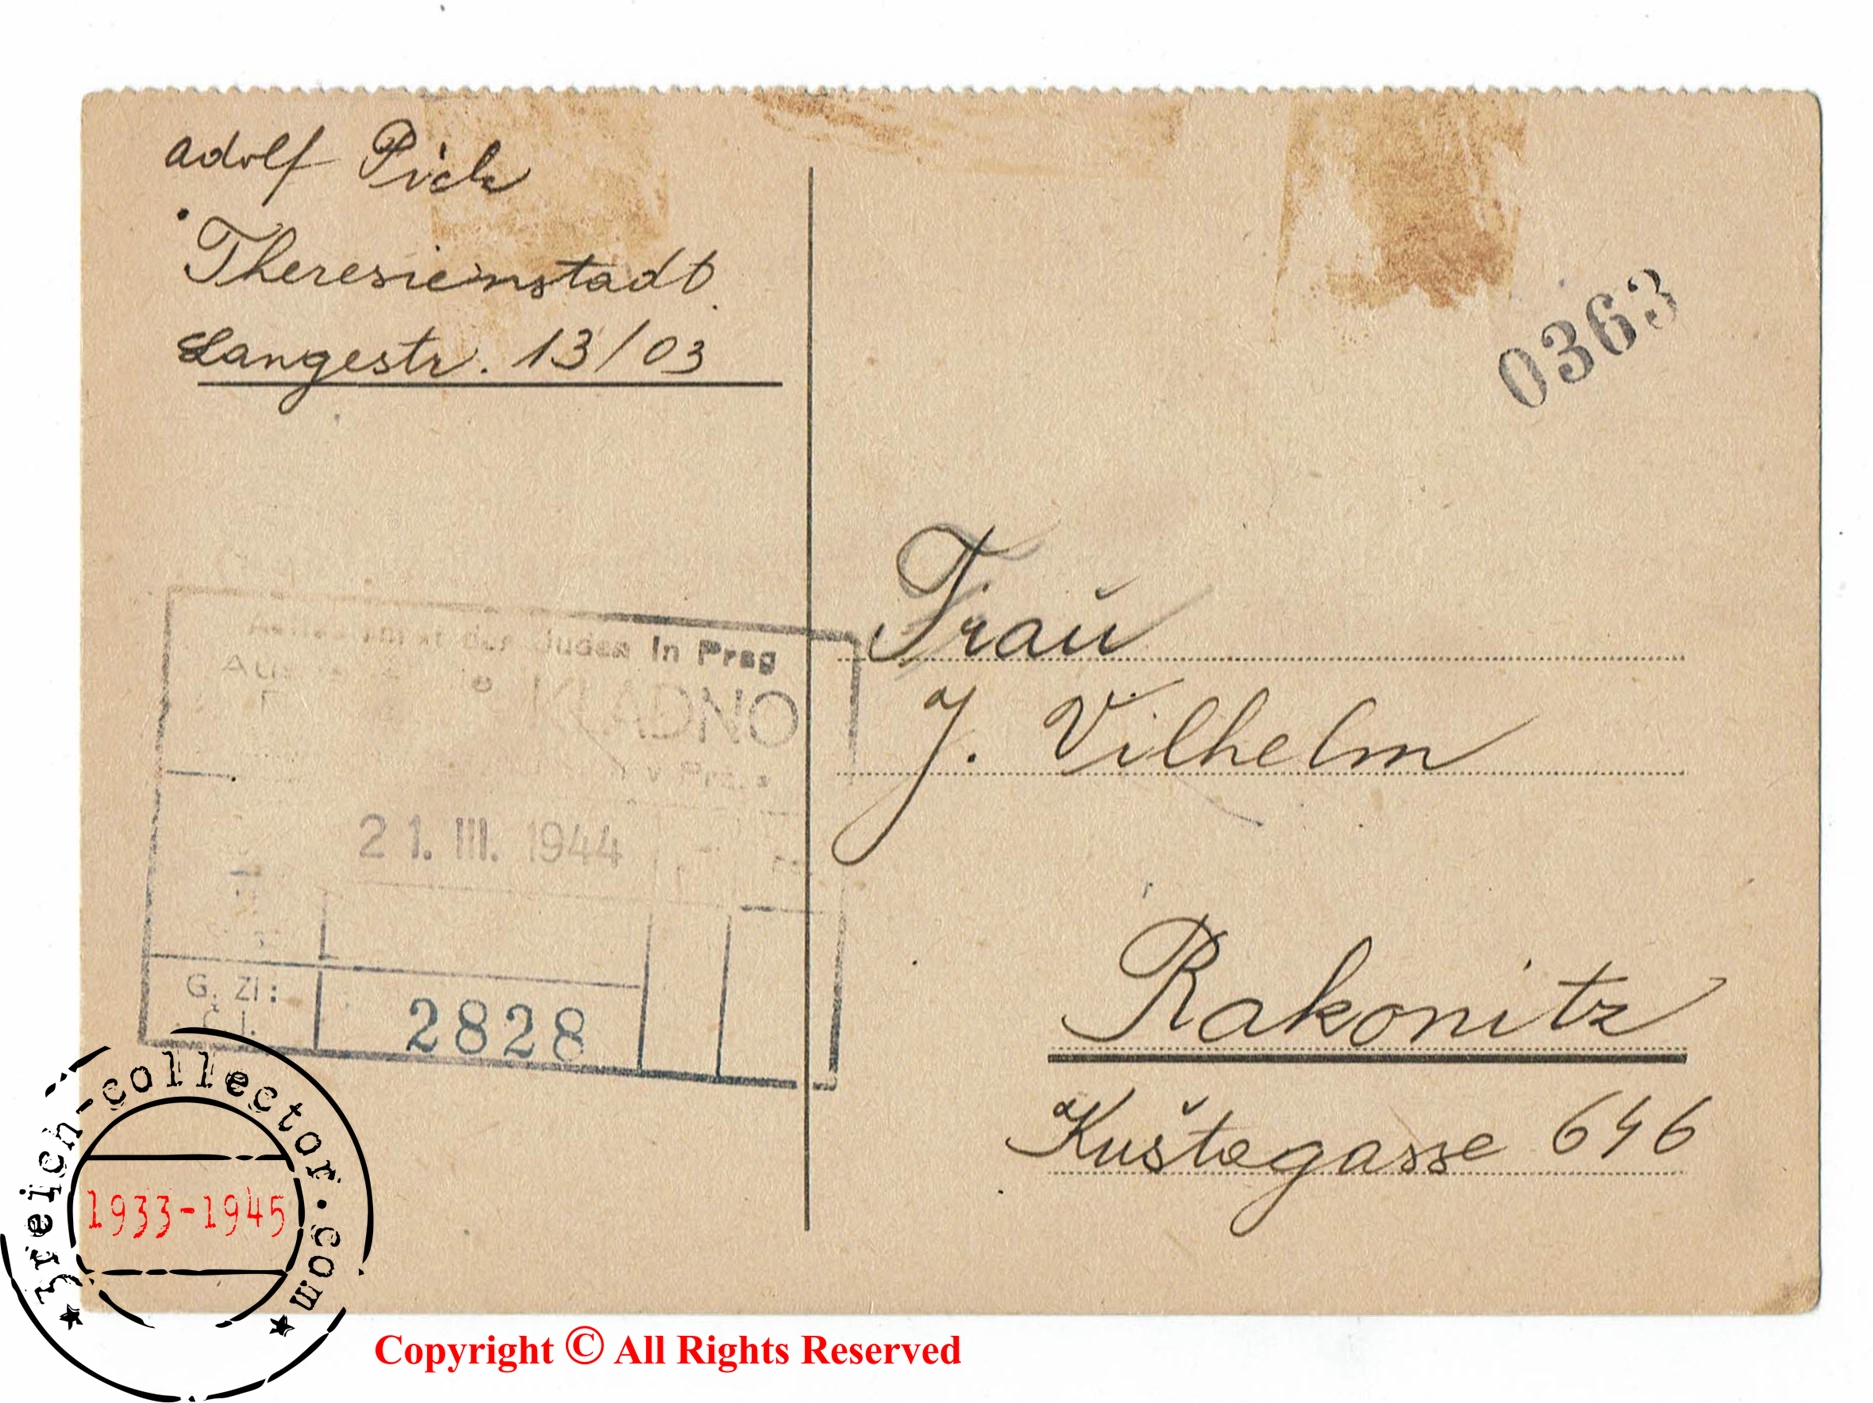 Adolf Pick
Theresienstadt
Langestr. 13/03
0363
Frau
J. Vilhelm
Rakonitz
Kuštagasse 646
der Juden in Prag
KLADNO
21. III. 1944
G. Zl:
2828
3reich-collector.com
1933-1945
Copyright © All Rights Reserved